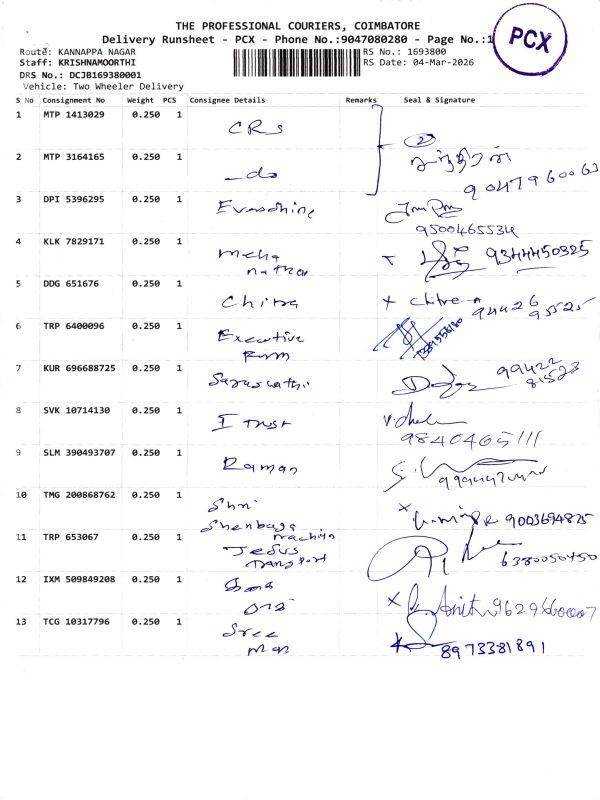 THE PROFESSIONAL COURIERS, COIMBATORE
Delivery Runsheet - PCX - Phone No.:9047080280 - Page No.:1
PCX
Route: KANNAPPA NAGAR
RS No.: 1693800
Staff: KRISHNAMOORTHI
RS Date: 04-Mar-2026
DRS No.: DCJB169380001
Vehicle: Two Wheeler Delivery
S No Consignment No Weight PCS Consignee Details Remarks Seal & Signature
1 MTP 1413029 0.250 1 CRS
2
2 MTP 3164165 0.250 1 -do
9047960063
3 DPI 5396295 0.250 1
9500465534
4 KLK 7829171 0.250 1 Mcha 9344450325
nathan
5 DDG 651676 0.250 1 Chitra x chitra
94426
95525
6 TRP 6400096 0.250 1 Executive
Rmm
7 KUR 696688725 0.250 1 Saraswathi 99422
81523
8 SVK 10714130 0.250 1 I Trust
9840465111
9 SLM 390493707 0.250 1 Raman
10 TMG 200868762 0.250 1 Shri x
Shenbaga 9003694825
Machine
11 TRP 653067 0.250 1 Jesus
Transport 6380050450
12 IXM 509849208 0.250 1 x
13 TCG 10317796 0.250 1 Sree
8973381891